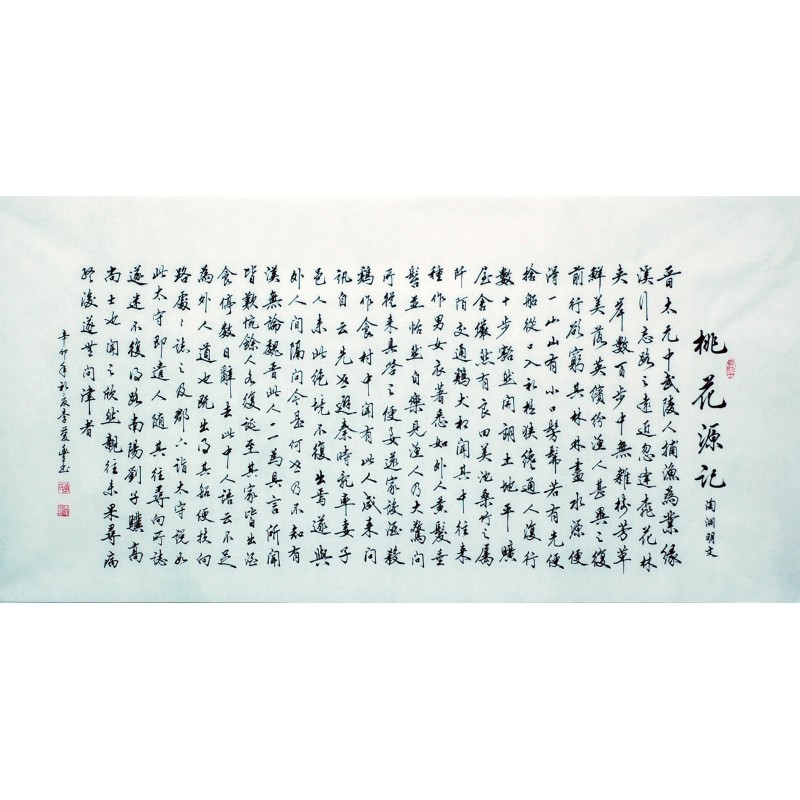 桃花源记
陶渊明文
晋太元中武陵人捕渔為業缘
溪行忘路之遠近忽逢桃花林
夹岸數百步中無雜樹芳草
鲜美落英缤纷渔人甚異之復
前行欲窮其林林盡水源便
得一山山有小口髣髴若有光便
捨船從口入初極狹纔通人復行
數十步豁然開朗土地平曠
屋舍儼然有良田美池桑竹之屬
阡陌交通鷄犬相聞其中往来
種作男女衣著悉如外人黄髮垂
髫並怡然自樂見渔人乃大驚問
所從来具答之便要還家設酒殺
鷄作食村中聞有此人咸来問
訊自云先世避秦時亂率妻子
邑人来此絶境不復出焉遂與
外人間隔問今是何世乃不知有
漢無論魏晋此人一一為具言所聞
皆歎惋餘人各復延至其家皆出酒
食停數日辭去此中人語云不足
為外人道也既出得其船便扶向
路處々誌之及郡下詣太守说如
此太守即遣人随其往尋向所誌
遂迷不復得路南陽劉子驥高
尚士也聞之欣然親往未果尋病
终後遂無問津者
辛卯年